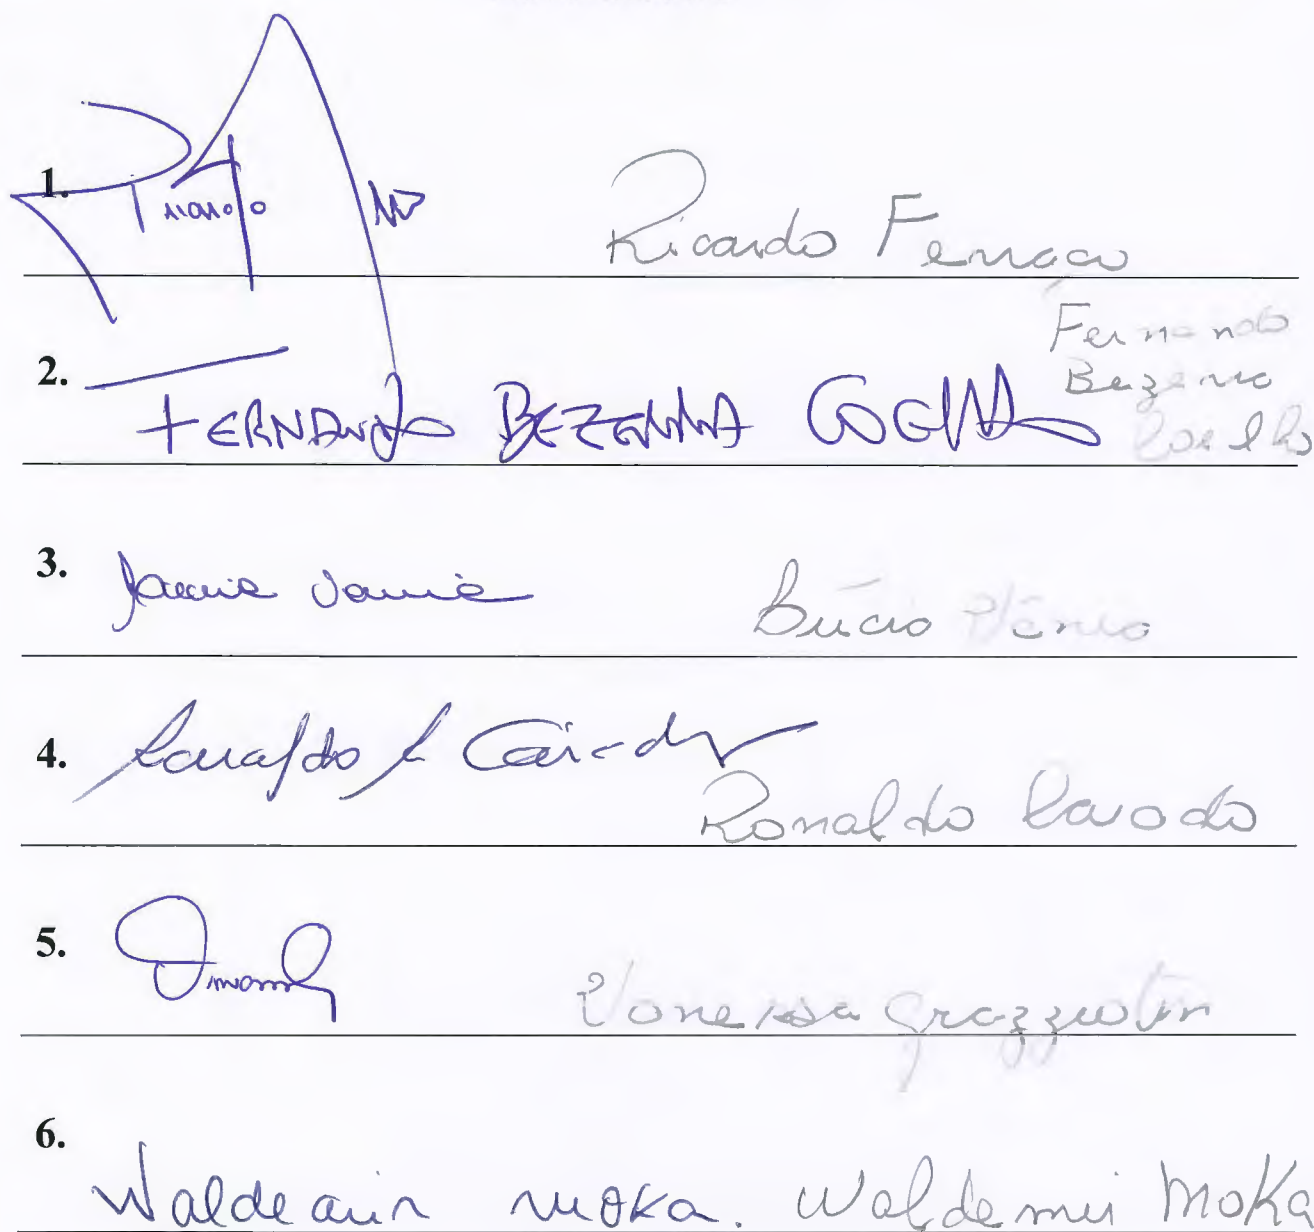 1. Ricardo Ferraço
2. FERNANDO BEZERRA COELHO Fernando Bezerra Coelho
3. Lúcia Vânia
4. Ronaldo Caiado
5. Vanessa Grazziotin
6. Waldemir Moka. Waldemir Moka